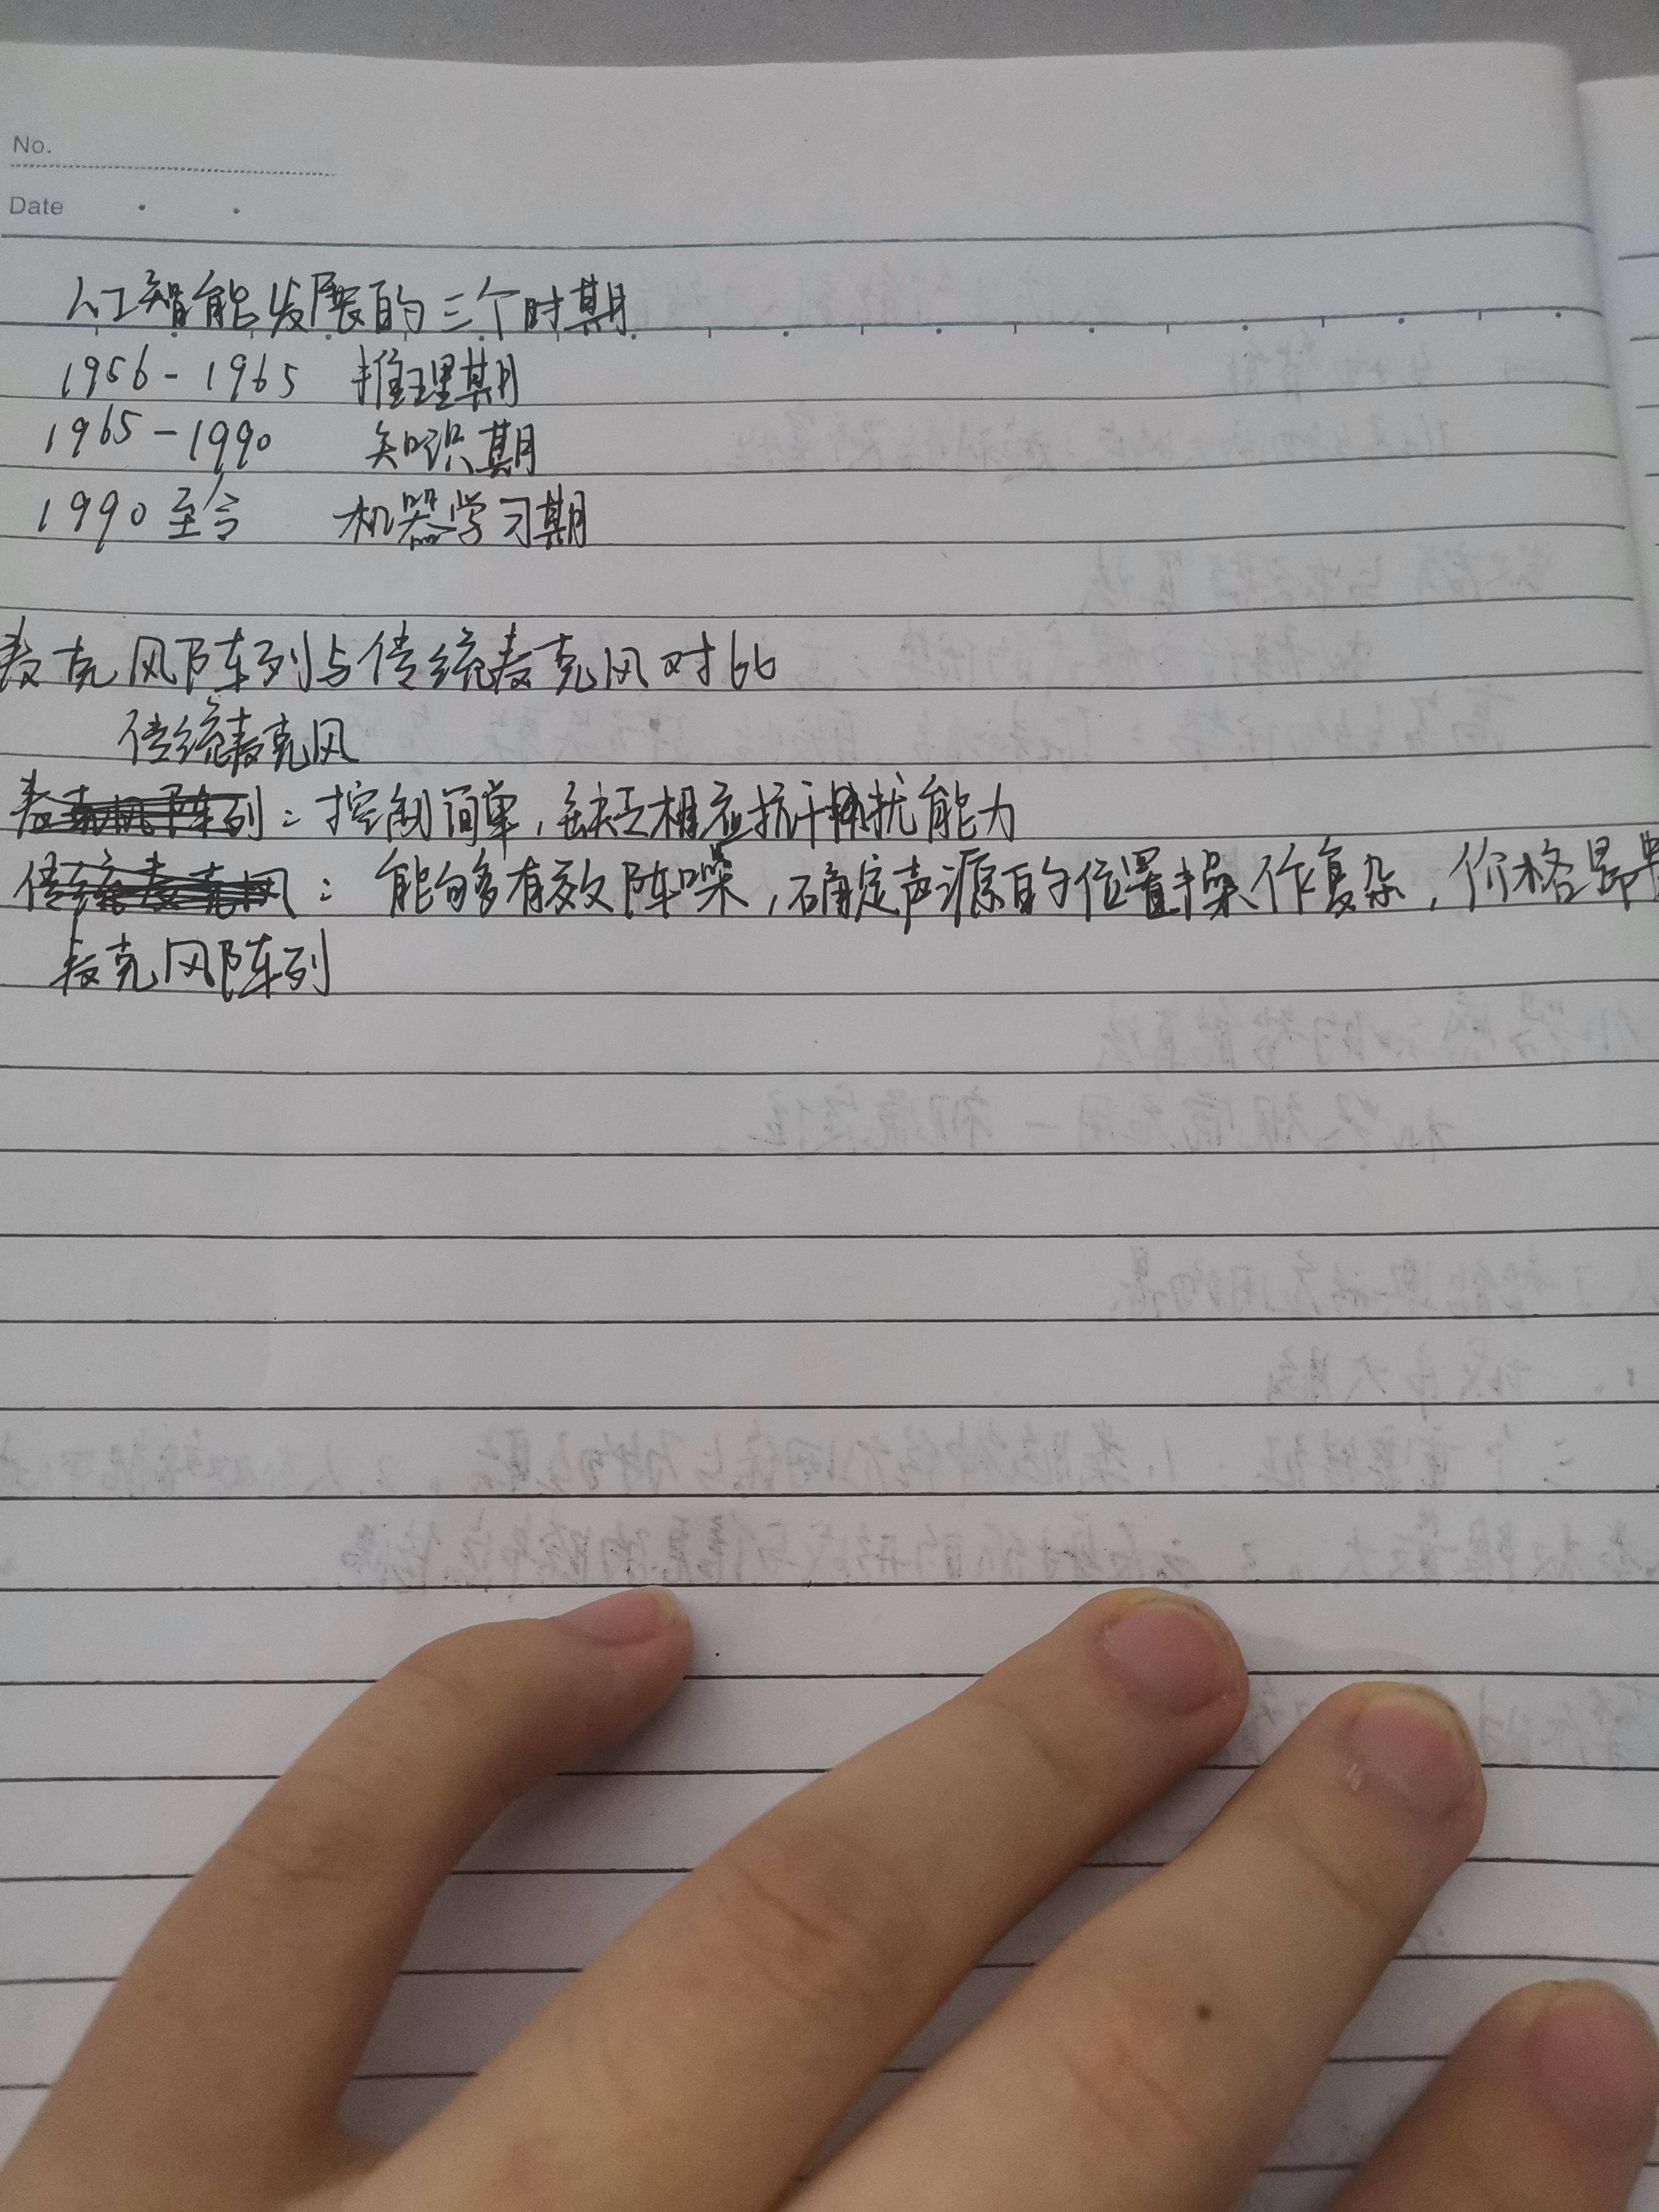 No.
Date
人工智能发展的三个时期
1956-1965 推理期
1965-1990 知识期
1990至今 机器学习期
麦克风阵列与传统麦克风对比
传统麦克风
麦克风阵列:控制简单,缺乏相应抗干扰能力
传统麦克风:能够有效阵噪,确定声源的位置操作复杂,价格昂贵
麦克风阵列